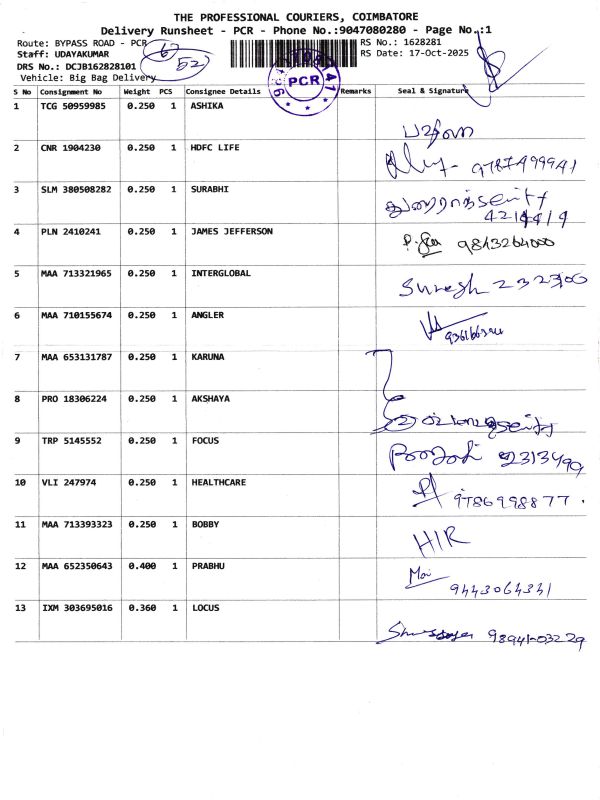 THE PROFESSIONAL COURIERS, COIMBATORE
Delivery Runsheet - PCR - Phone No.:9047080280 - Page No.:1
Route: BYPASS ROAD - PCR
Staff: UDAYAKUMAR
DRS No.: DCJB162828101
Vehicle: Big Bag Delivery
RS No.: 1628281
RS Date: 17-Oct-2025
PCR
S No Consignment No Weight PCS Consignee Details Remarks Seal & Signature
1 TCG 50959985 0.250 1 ASHIKA
2 CNR 1904230 0.250 1 HDFC LIFE
3 SLM 380508282 0.250 1 SURABHI
4 PLN 2410241 0.250 1 JAMES JEFFERSON 9843264000
5 MAA 713321965 0.250 1 INTERGLOBAL Suresh 232300
6 MAA 710155674 0.250 1 ANGLER
7 MAA 653131787 0.250 1 KARUNA
8 PRO 18306224 0.250 1 AKSHAYA
9 TRP 5145552 0.250 1 FOCUS 2313499
10 VLI 247974 0.250 1 HEALTHCARE 9786998877.
11 MAA 713393323 0.250 1 BOBBY HIR
12 MAA 652350643 0.400 1 PRABHU 9443064341
13 IXM 303695016 0.360 1 LOCUS 98941-03229